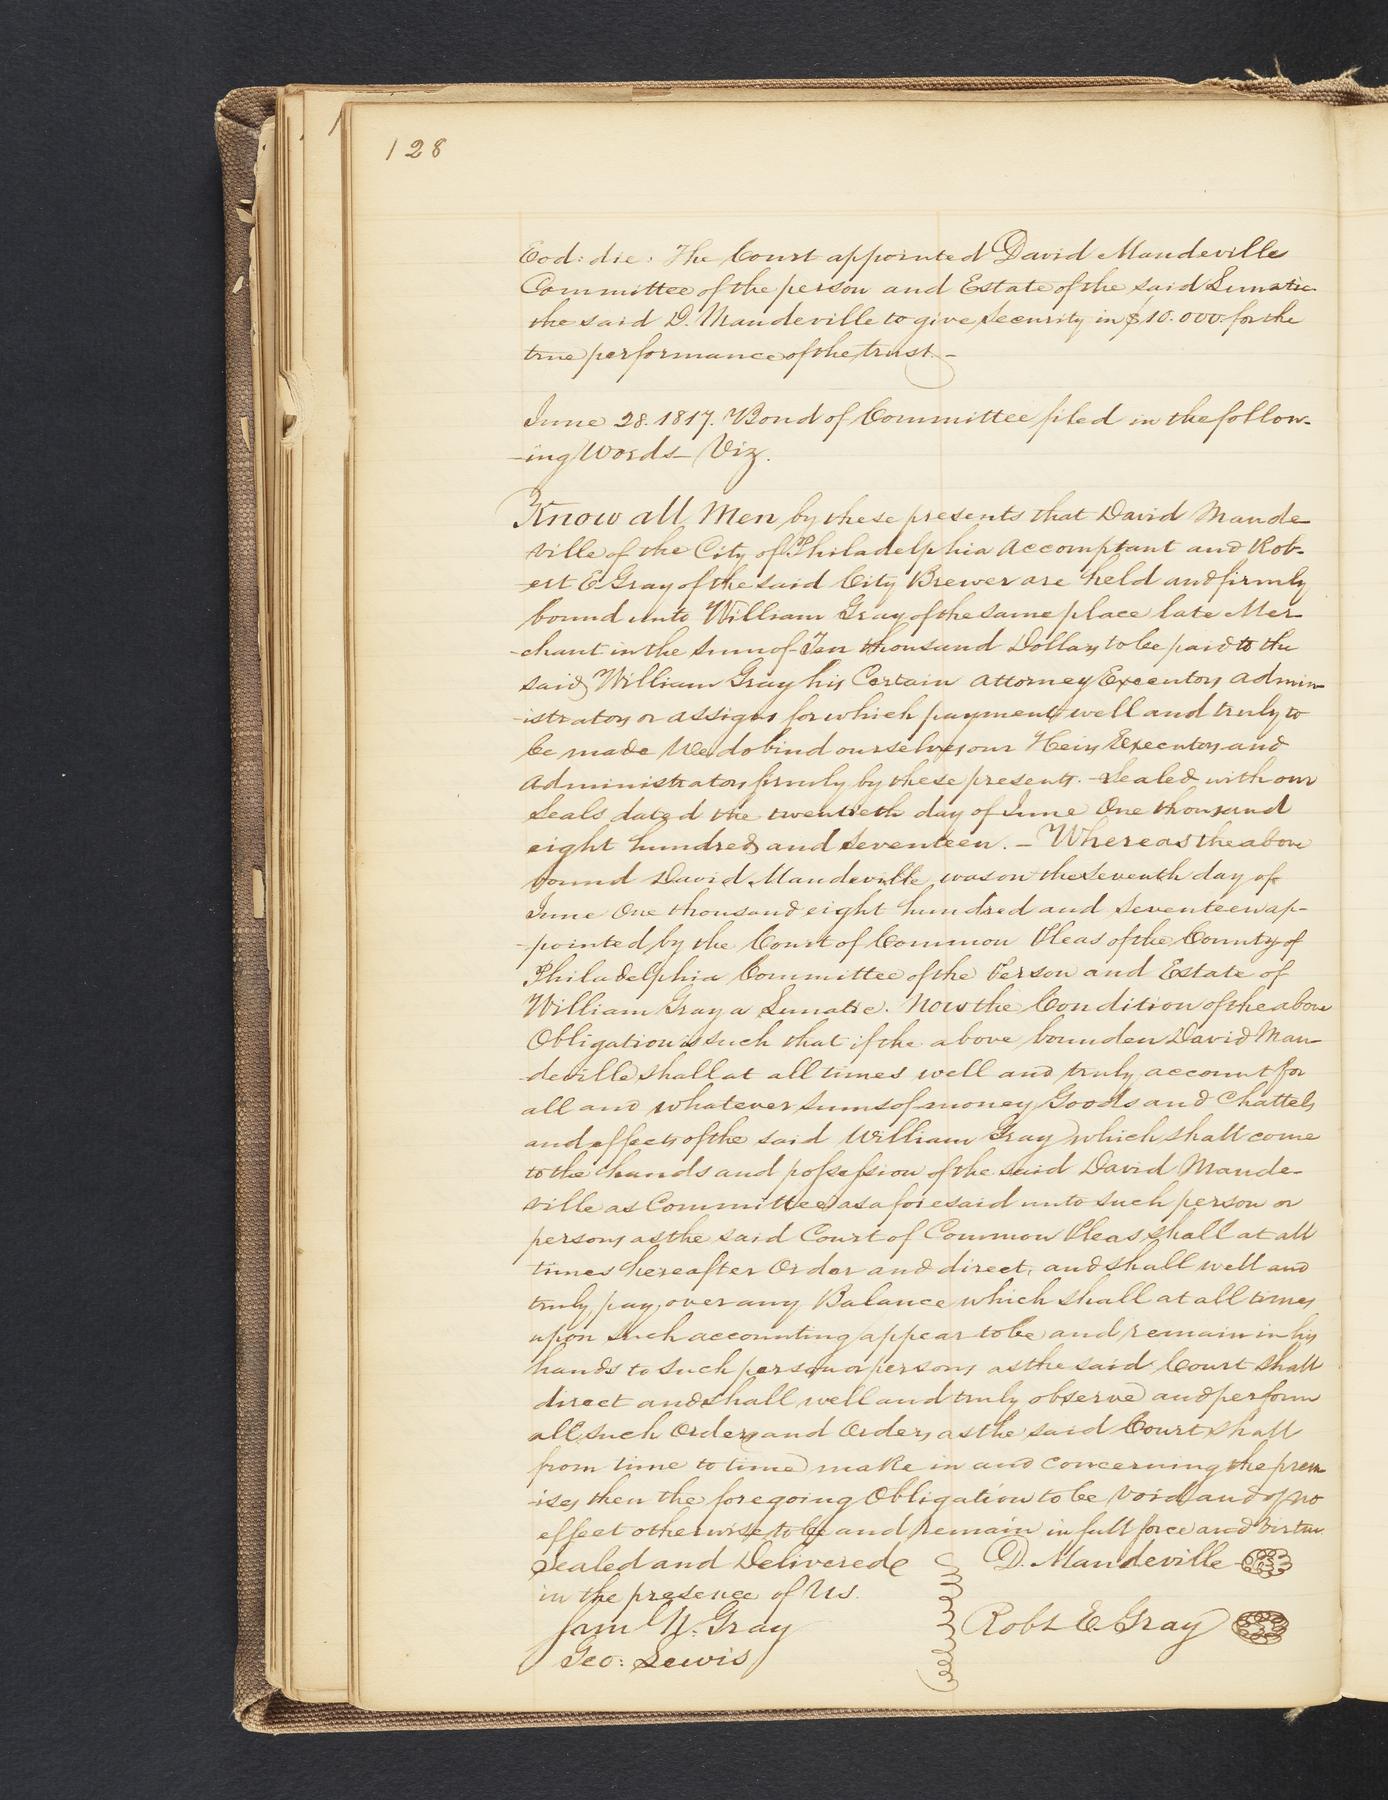 128
Eod: die: The Court appointed David Mandeville
Committee of the person and Estate of the said Lunatic
the said D. Mandeville to give Security in $10.000 for the
true performance of the trust. –
June 28. 1817. Bond of Committee filed in the follow-
-ing Words – Viz.
Know all Men by these presents that David Mande-
ville of the City of Philadelphia Accomptant and Rob-
-ert E Gray of the said City Brewer are held and firmly
bound unto William Gray of the same place late Mer-
-chant in the sum of Ten thousand Dollars to be paid to the
said William Gray his Certain Attorney Executors Admin-
-istrators or assigns for which payment well and truly to
be made We do bind ourselves our Heirs Executors and
Administrators firmly by these presents. – Sealed with our
Seals dated the twentieth day of June One thousand
eight hundred and seventeen. – Whereas the above
bound David Mandeville was on the seventh day of
June One thousand eight hundred and seventeen ap-
-pointed by the Court of Common Pleas of the County of
Philadelphia Committee of the Person and Estate of
William Gray a Lunatic. Now the Condition of the above
Obligation is such that if the above bounden David Man-
-deville shall at all times well and truly account for
all and whatever sums of money Goods and Chattels
and effects of the said William Gray which shall come
to the hands and possession of the said David Mande-
ville as Committee as aforesaid unto such person or
persons as the said Court of Common Pleas shall at all
times hereafter Order and direct, and shall well and
truly pay over any Balance which shall at all times
upon such accounting appear to be and remain in his
hands to such person or persons as the said Court shall
direct and shall well and truly observe and perform
all such Orders and Orders as the said Court shall
from time to time make in and concerning the prem-
-ises then the foregoing Obligation to be void and of no
effect otherwise to be and remain in full force and virtue
Sealed and Delivered D. Mandeville
in the presence of Us.
W. Gray Robt E. Gray
Geo: Lewis